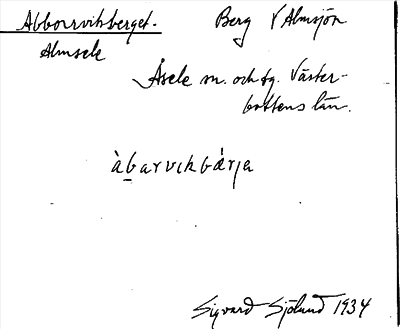 Abborrviksberget. Berg V Almsjön
Almsele
Åsele sn. och tg. Väster-
bottens län.
àbarvikbǽrja
Sigvard Sjölund 1934